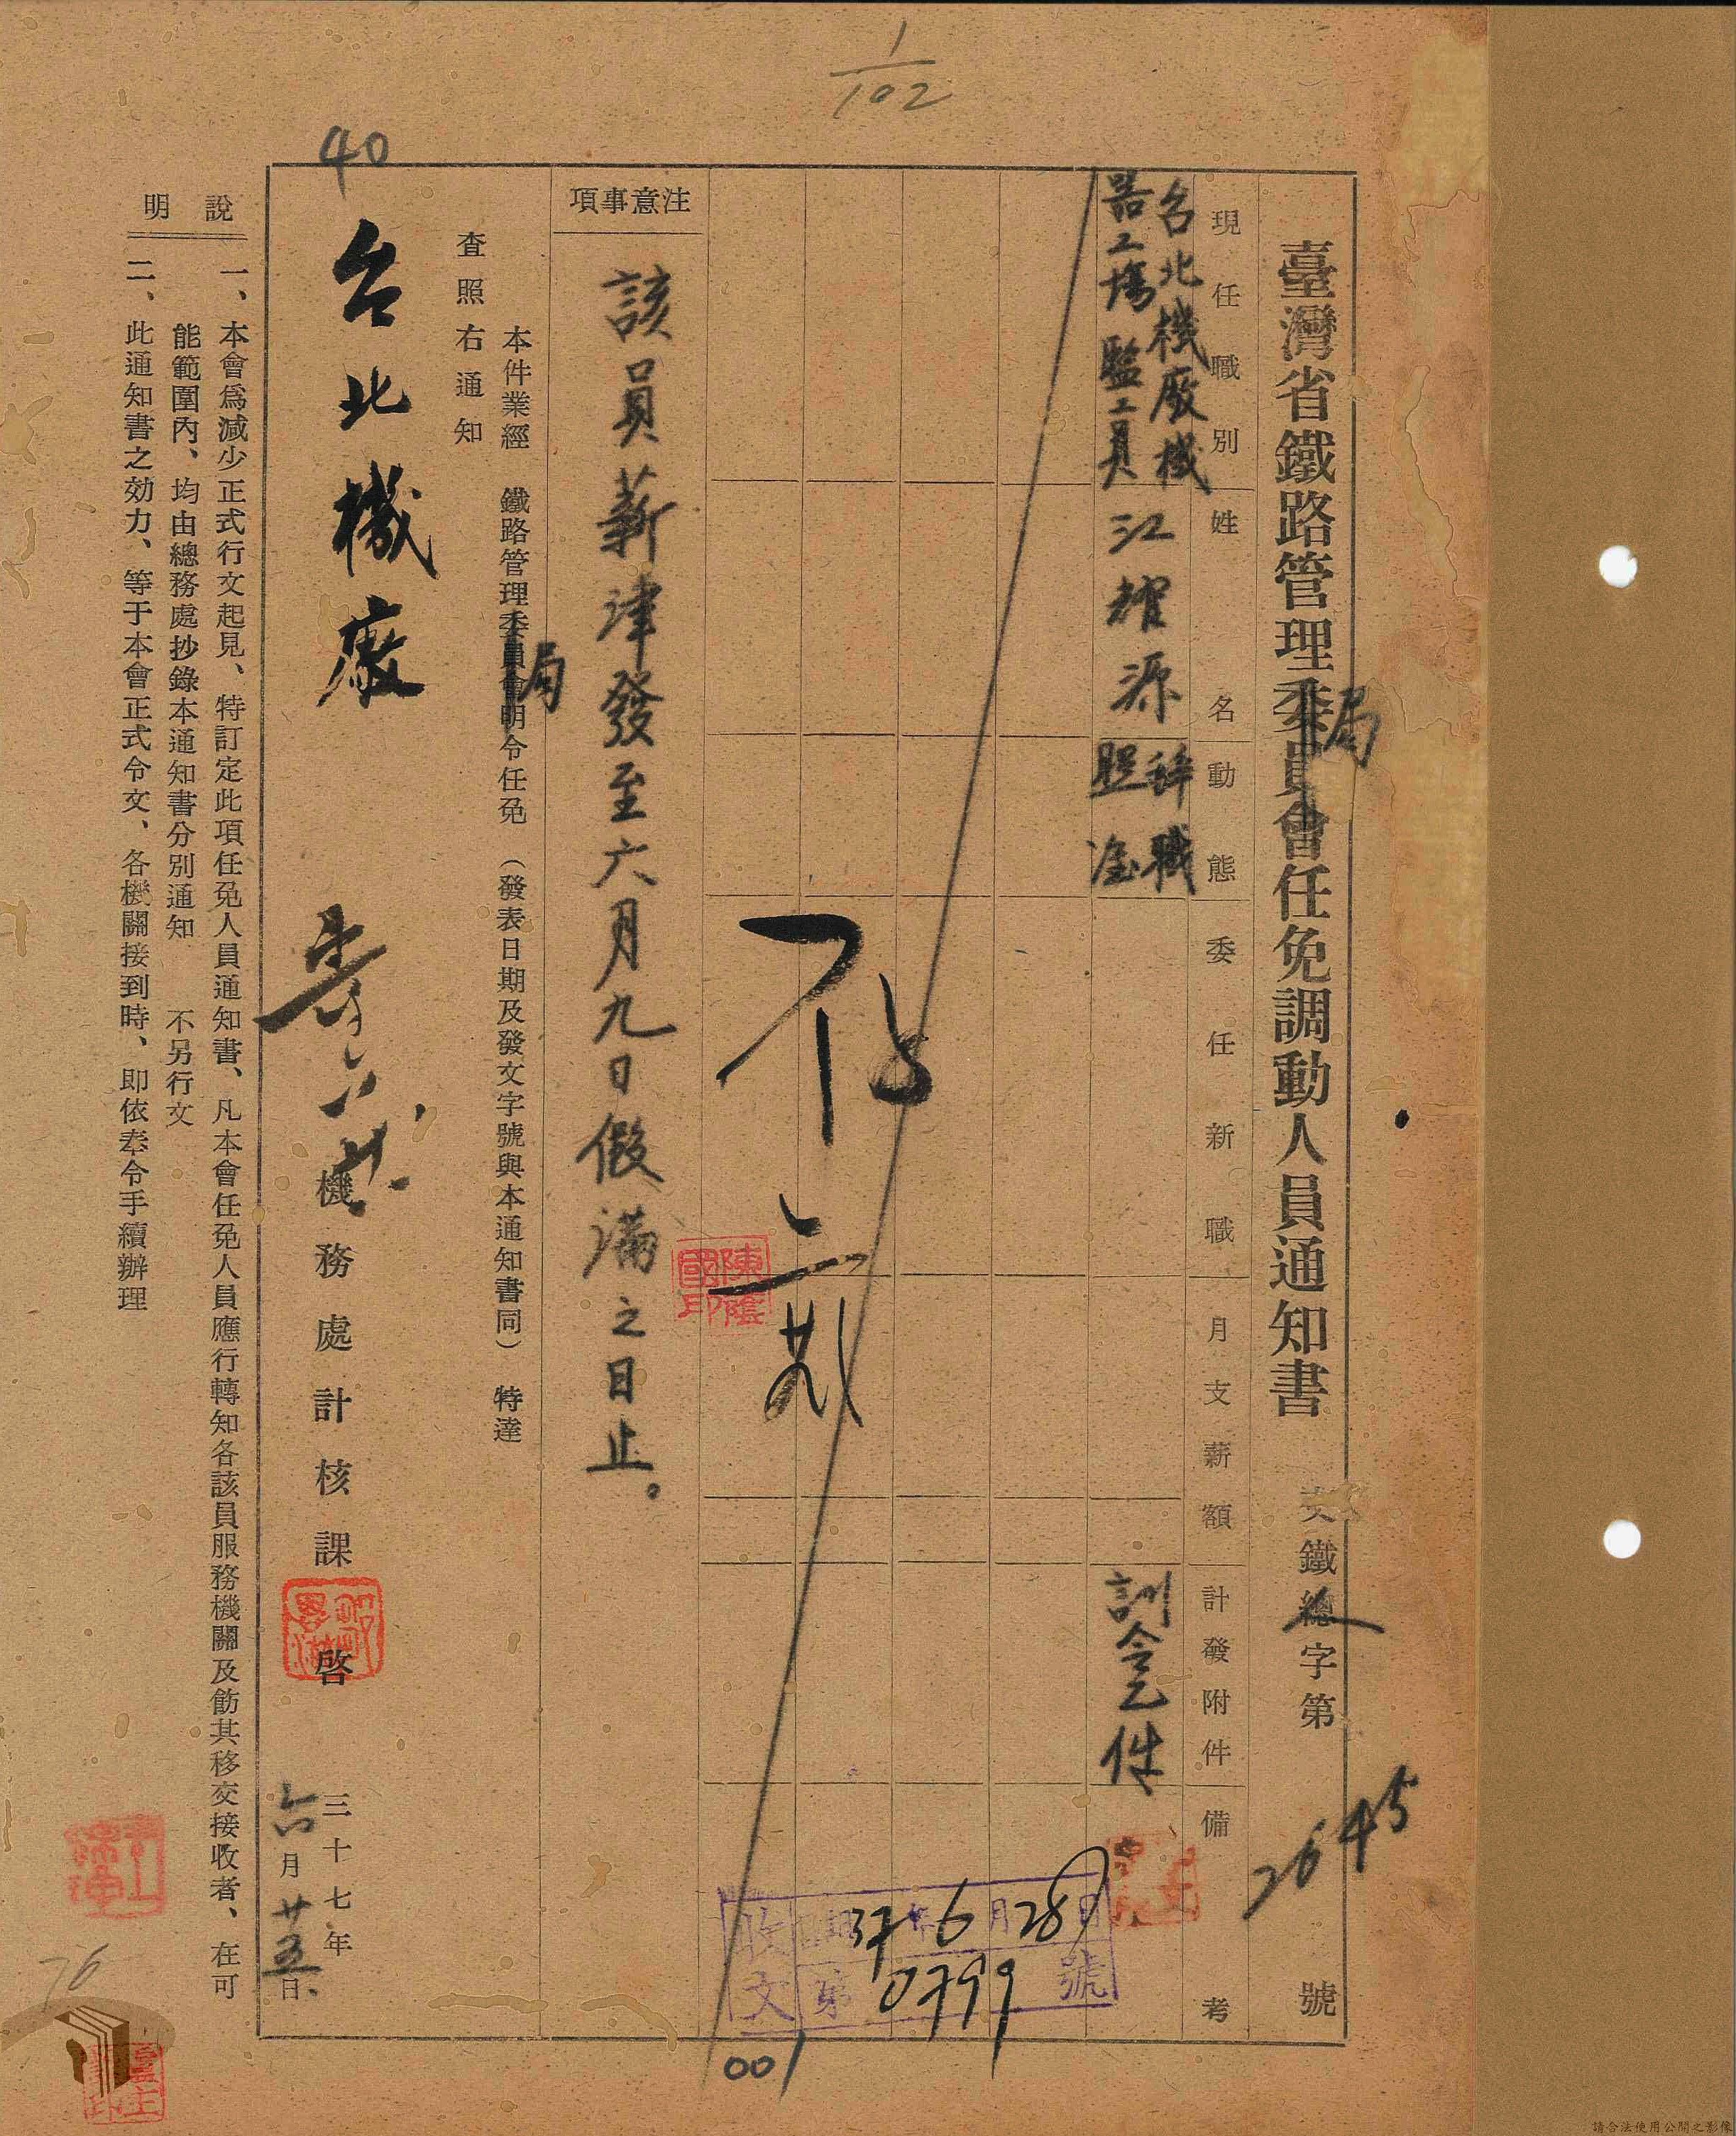 1/102
40
臺灣省鐵路管理委員會任免調動人員通知書
局
交鐵總字第 號
人
2645
現任職別
姓名
動態
委任新職
月支薪額
計發附件
備考
台北機廠機
器工場監工員
江耀源
辭職
照准
訓令乙件
注意事項
該員薪津發至六月九日假滿之日止。
本件業經 鐵路管理委員會明令任免 (發表日期及發文字號與本通知書同) 特達
局
查照右通知
台北機廠
機務處計核課 啓
三十七年
六月廿五日
說明
一、本會爲減少正式行文起見、特訂定此項任免人員通知書、凡本會任免人員應行轉知各該員服務機關及飭其移交接收者、在可
能範圍內、均由總務處抄錄本通知書分別通知 不另行文
二、此通知書之効力、等于本會正式令文、各機關接到時、即依奉令手續辦理
陳蔭國印
收文
37年6月28日
第0799號
001
76
請合法使用公開之影像